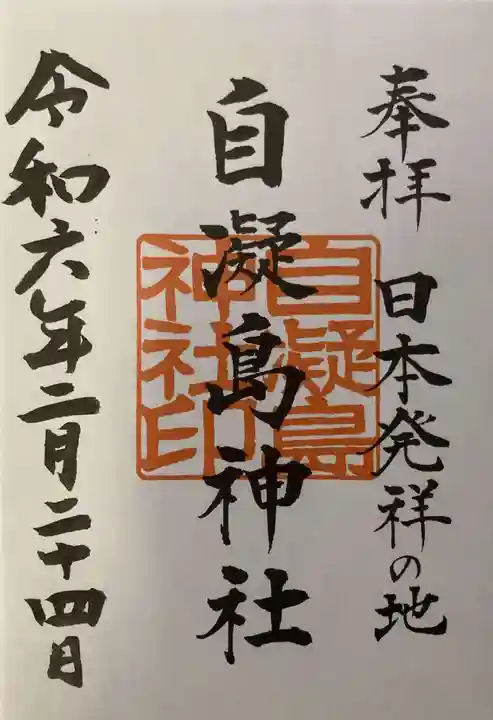 奉拝 日本発祥の地
自凝島神社
自凝島
神社印
令和六年二月二十四日